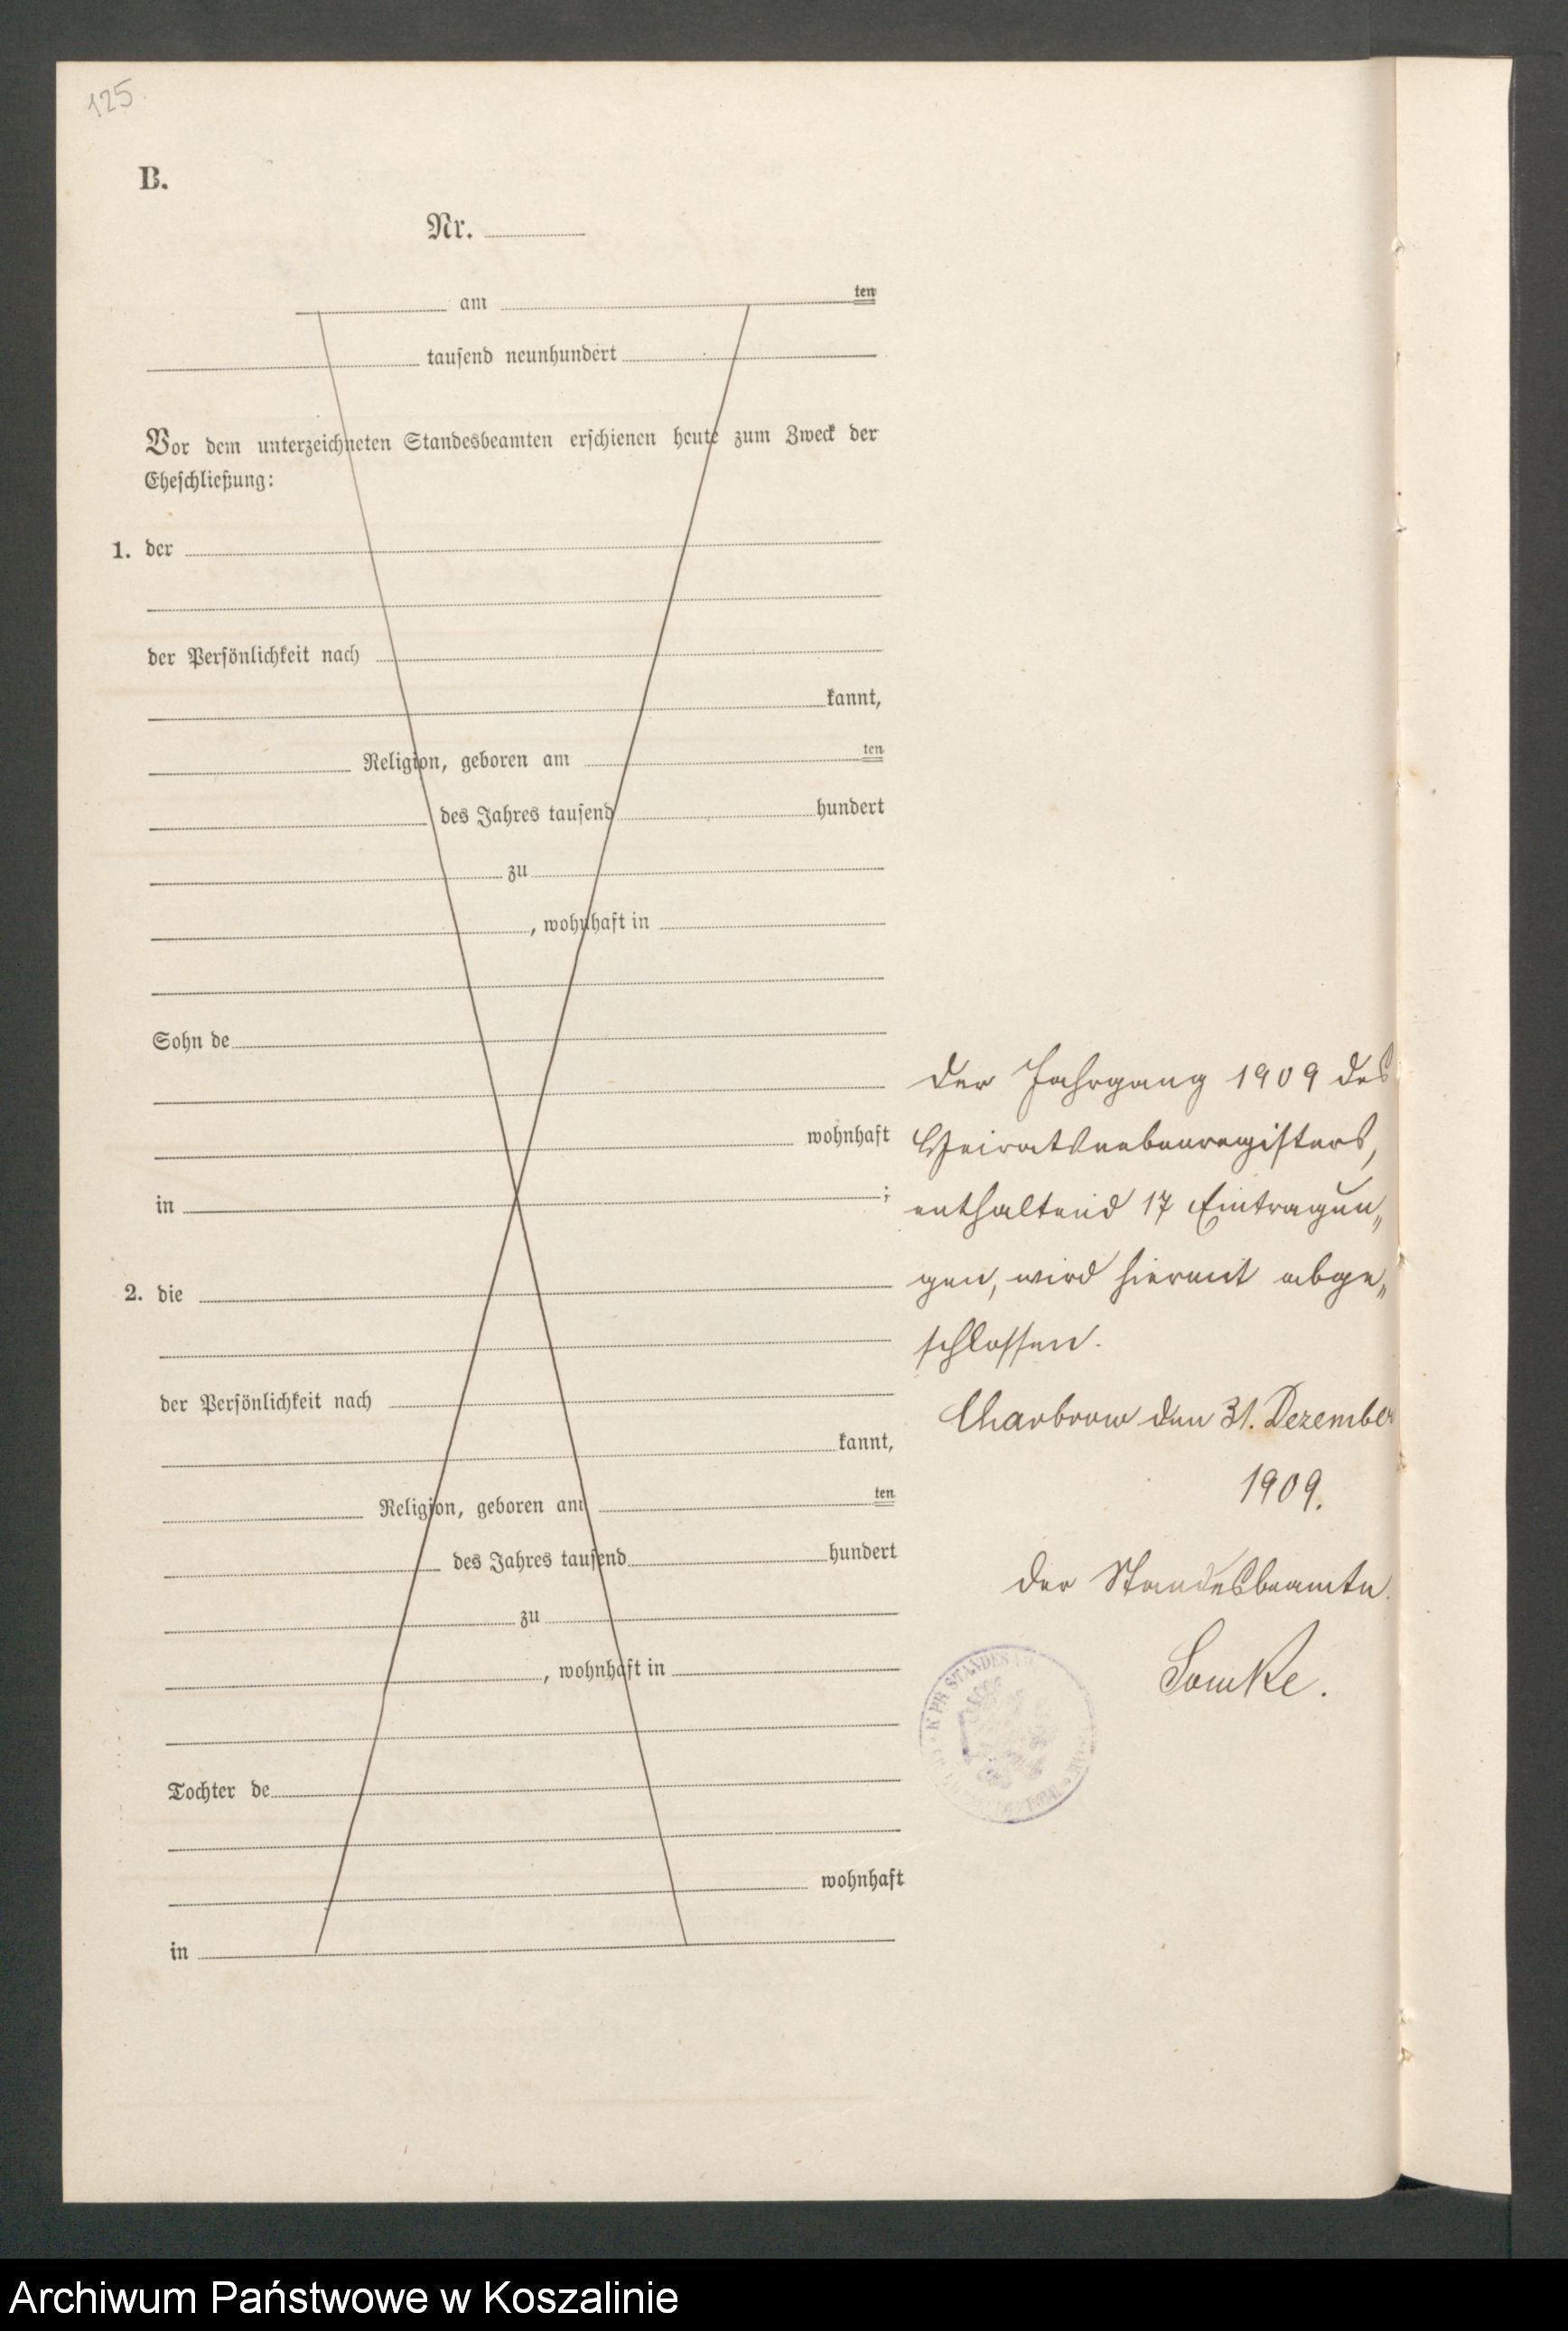 125.
B.
Nr.
am ten
tausend neunhundert
Vor dem unterzeichneten Standesbeamten erschienen heute zum Zweck der
Eheschließung:
1. der
der Persönlichkeit nach
kannt,
Religion, geboren am ten
des Jahres tausend hundert
zu
, wohnhaft in
Sohn de
wohnhaft
in ;
2. die
der Persönlichkeit nach
kannt,
Religion, geboren am ten
des Jahres tausend hundert
zu
, wohnhaft in
Tochter de
wohnhaft
in
Der Jahrgang 1909 des
Heiratsnebenregisters,
enthaltend 17 Eintragun„
gen, wird hiermit abge„
schlossen.
Charbrow den 31. Dezember
1909.
Der Standesbeamte.
K PR STANDES
Archiwum Państwowe w Koszalinie